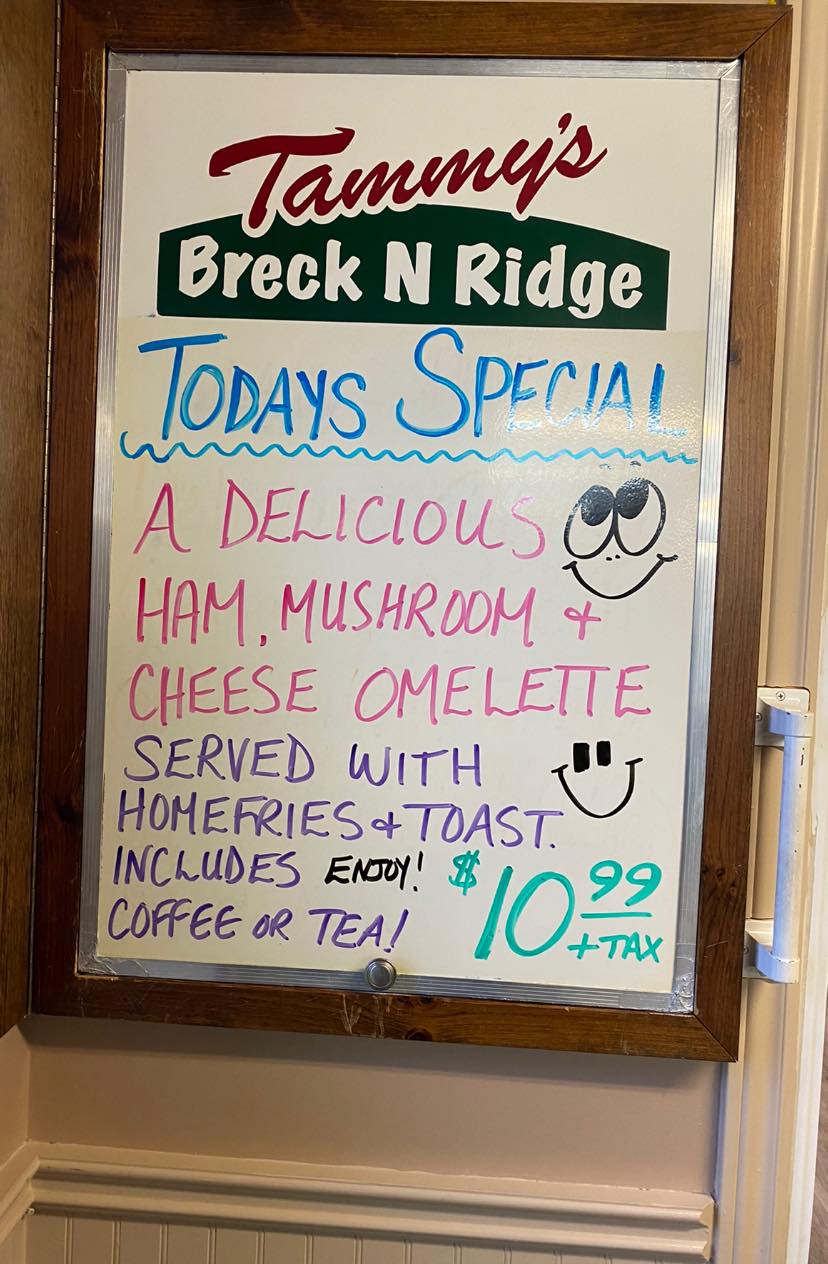 Tammy's
Breck N Ridge
TODAYS SPECIAL
A DELICIOUS
HAM, MUSHROOM &
CHEESE OMELETTE
SERVED WITH
HOMEFRIES & TOAST.
INCLUDES ENJOY!
COFFEE OR TEA!
$10 99
+ TAX